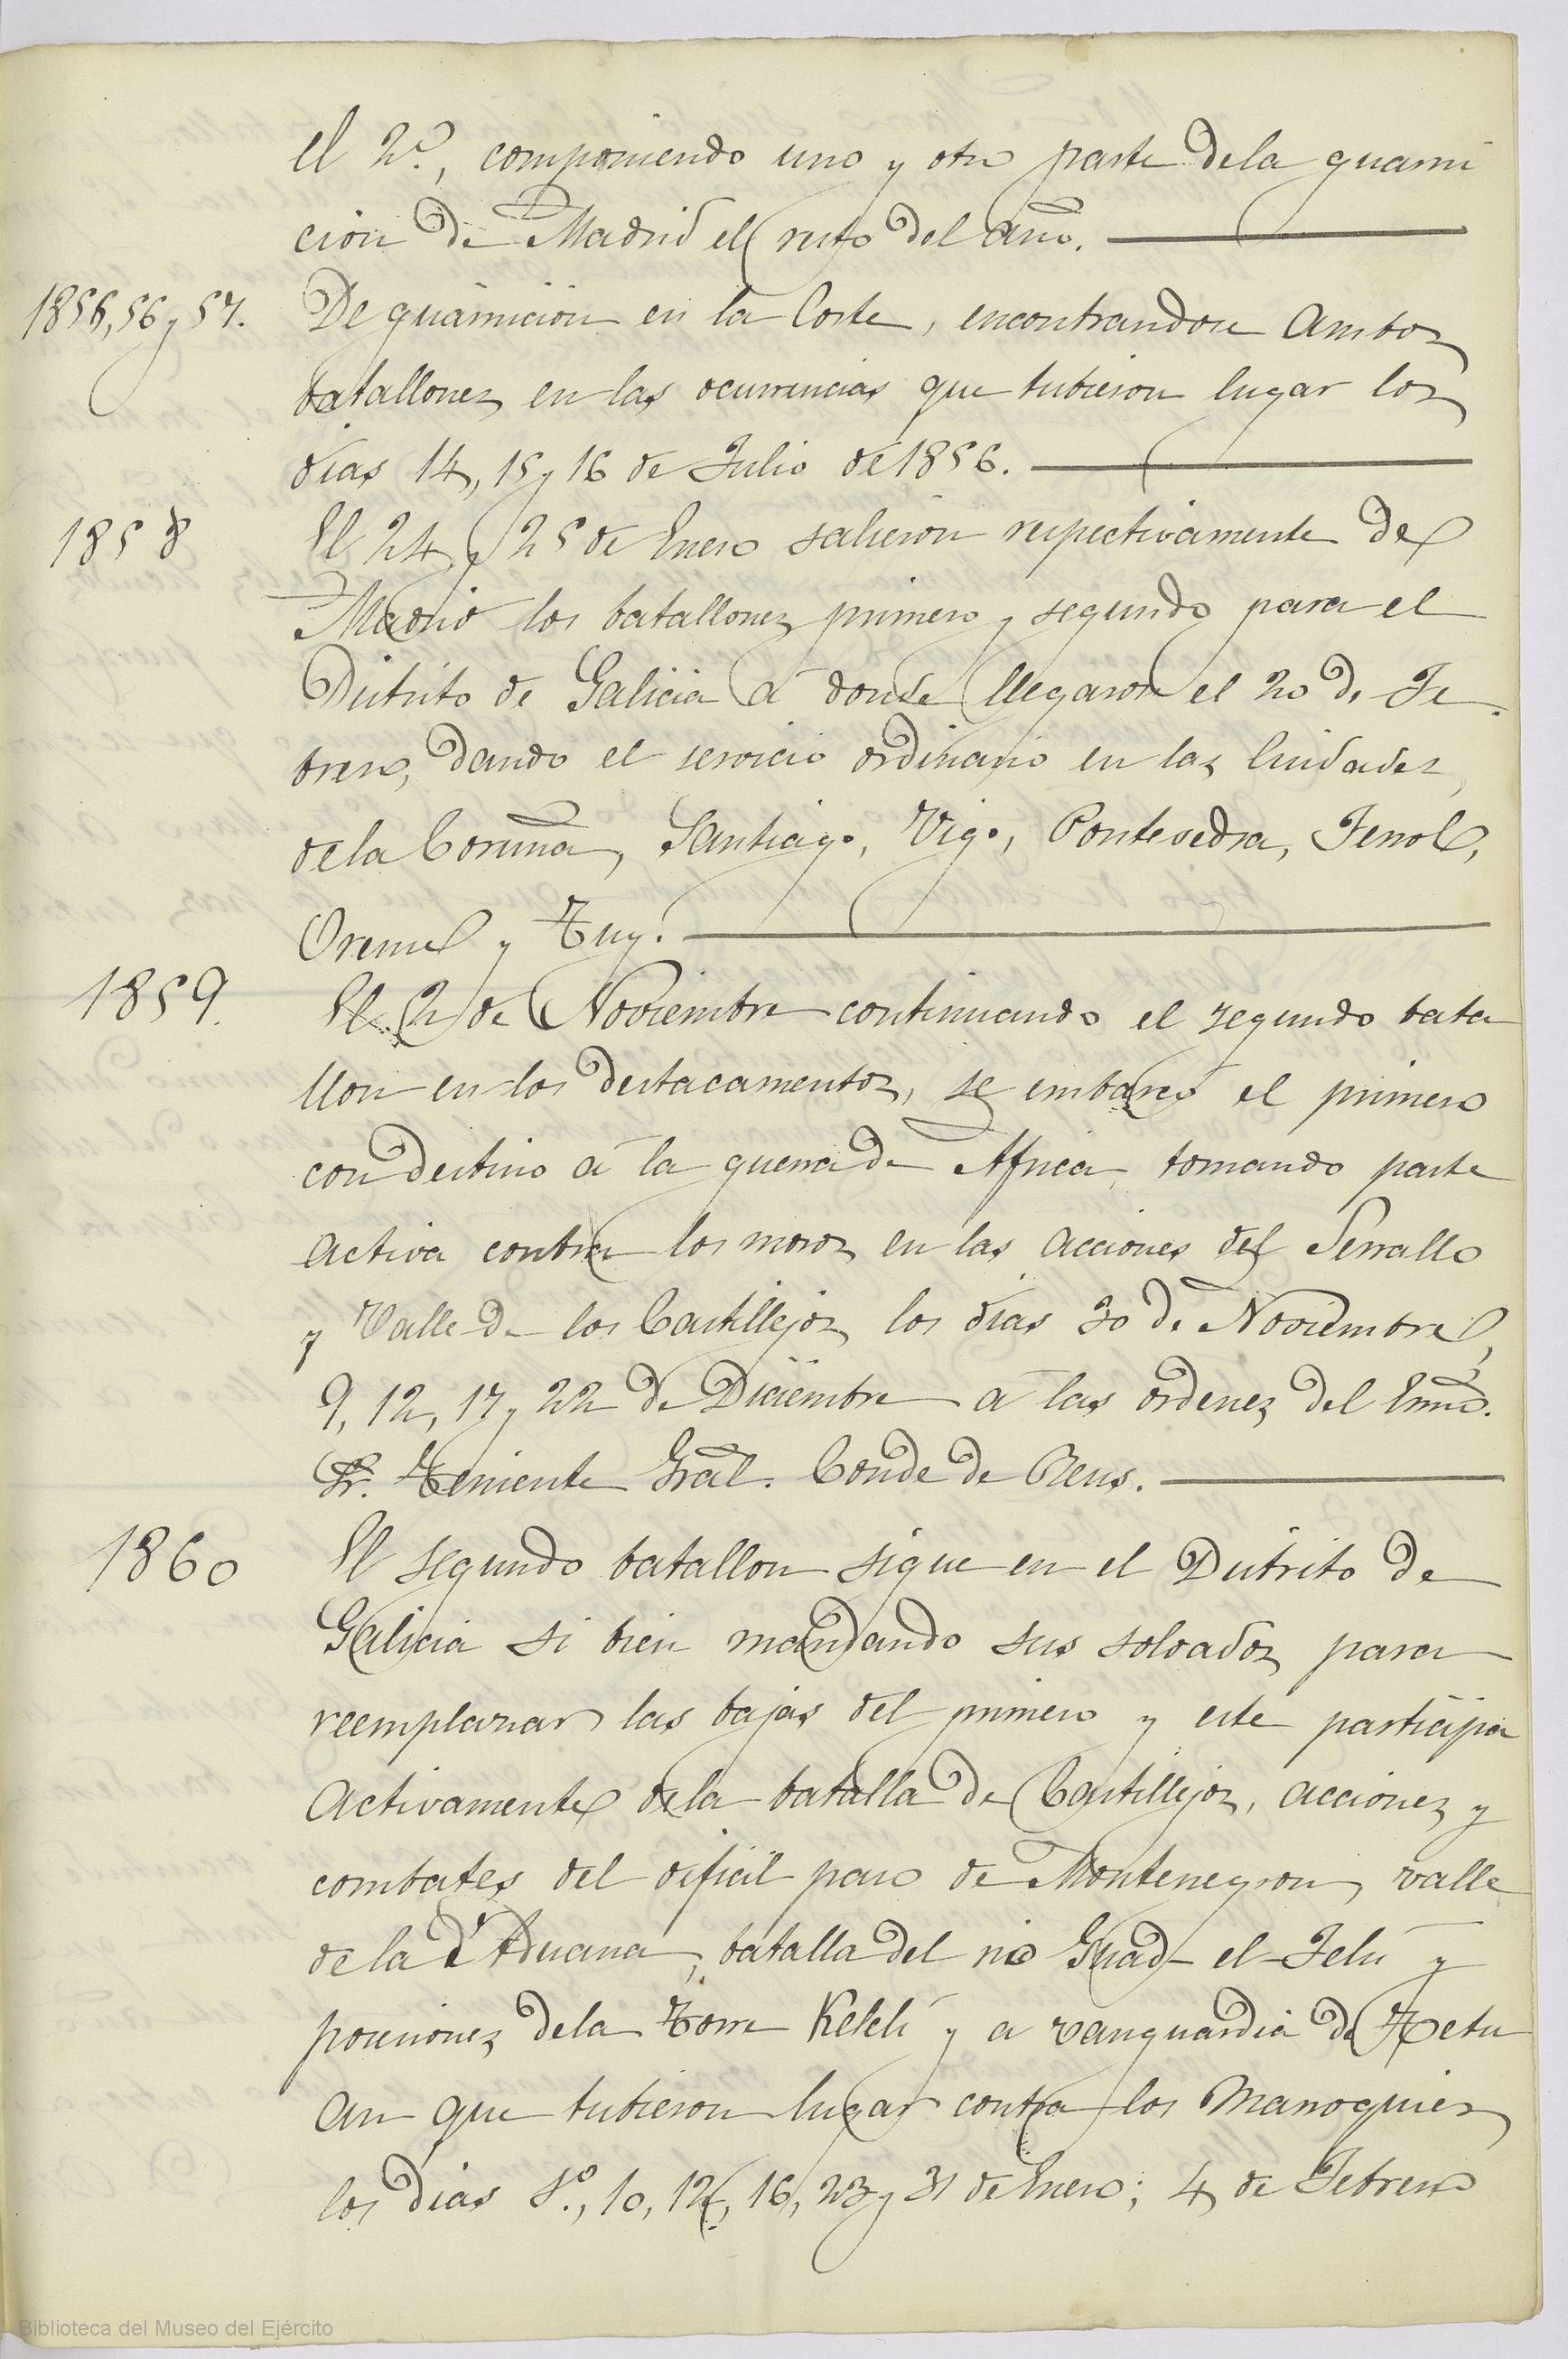 el 2º, componiendo uno y otro parte dela guarni
cion de Madrid el resto del año.
1855, 56 y 57. De guarnicion en la Corte, encontrandose ambos
batallones en las ocurrencias que tubieron lugar los
dias 14, 15 y 16 de Julio de 1856.
1858 El 24 y 25 de Enero salieron respectivamente de
Madrid los batallones primero y segundo para el
Distrito de Galicia á donde llegaron el 20 de Fe
brero, dando el servicio ordinario en las Ciudades
dela Coruña, Santiago, Vigo, Pontevedra, Ferrol,
Orense y Tuy.
1859. El 2 de Noviembre continuando el segundo bata
llon en los destacamentos, se embarco el primero
con destino á la guerra de Africa tomando parte
activa contra los moros en las acciones del Serrallo
y Valle de los Castillejos los dias 30 de Noviembre,
9, 12, 17 y 22 de Diciembre á las ordenes del Exmo.
Sr. Teniente Gral. Conde de Reus.
1860 El segundo batallon sigue en el Distrito de
Galicia si bien mandando sus soldados para
reemplazar las bajas del primero y este participa
activamente dela batalla de Castillejos, acciones y
combates del dificil paso de Montenegron, valle
de la Aduana, batalla del rio Guad-el-Jelú y
posesiones dela Torre Kelelí y a vanguardia de Tetu
an que tubieron lugar contra los Marroquies
los dias 1º, 10, 12, 16, 23 y 31 de Enero; 4 de Febrero
Biblioteca del Museo del Ejército